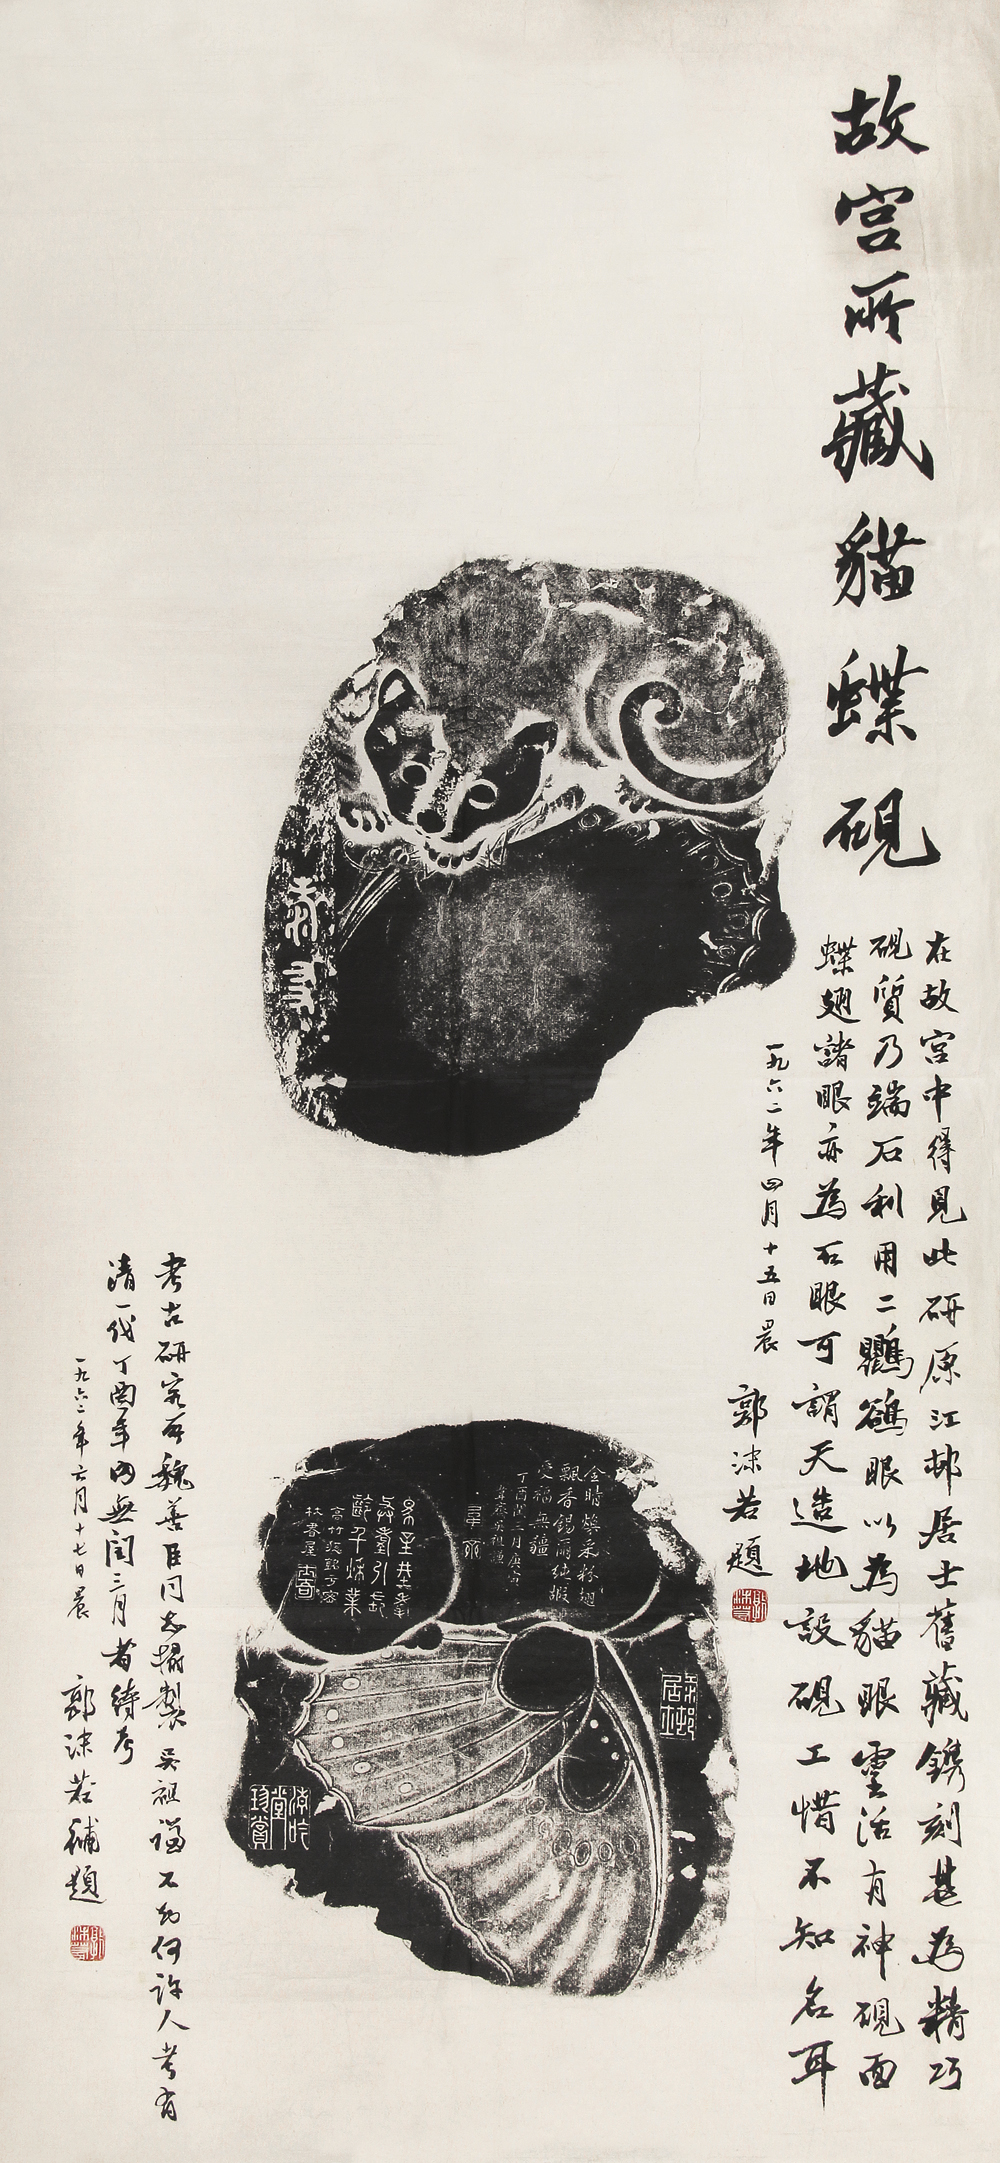 故宫所藏貓蝶硯
在故宫中得見此研原江邨居士舊藏鐫刻甚為精巧
硯質乃端石利用二鸜鵒眼以為貓眼靈活有神硯面
蝶翅諸眼亦為石眼可謂天造地設硯工惜不知名耳
一九六二年四月十五日晨
郭沫若題
壽
金睛煥采粉翅
飄香錫爾純嘏
受福無疆
丁酉閏三月庚寅
林書屋
江邨
居士
珍賞
考古研究所魏善臣同志搨製 吴祖謙不知何許人考有
清一代丁酉年内無閏三月者待考
一九六二年六月十七日晨
郭沫若補題